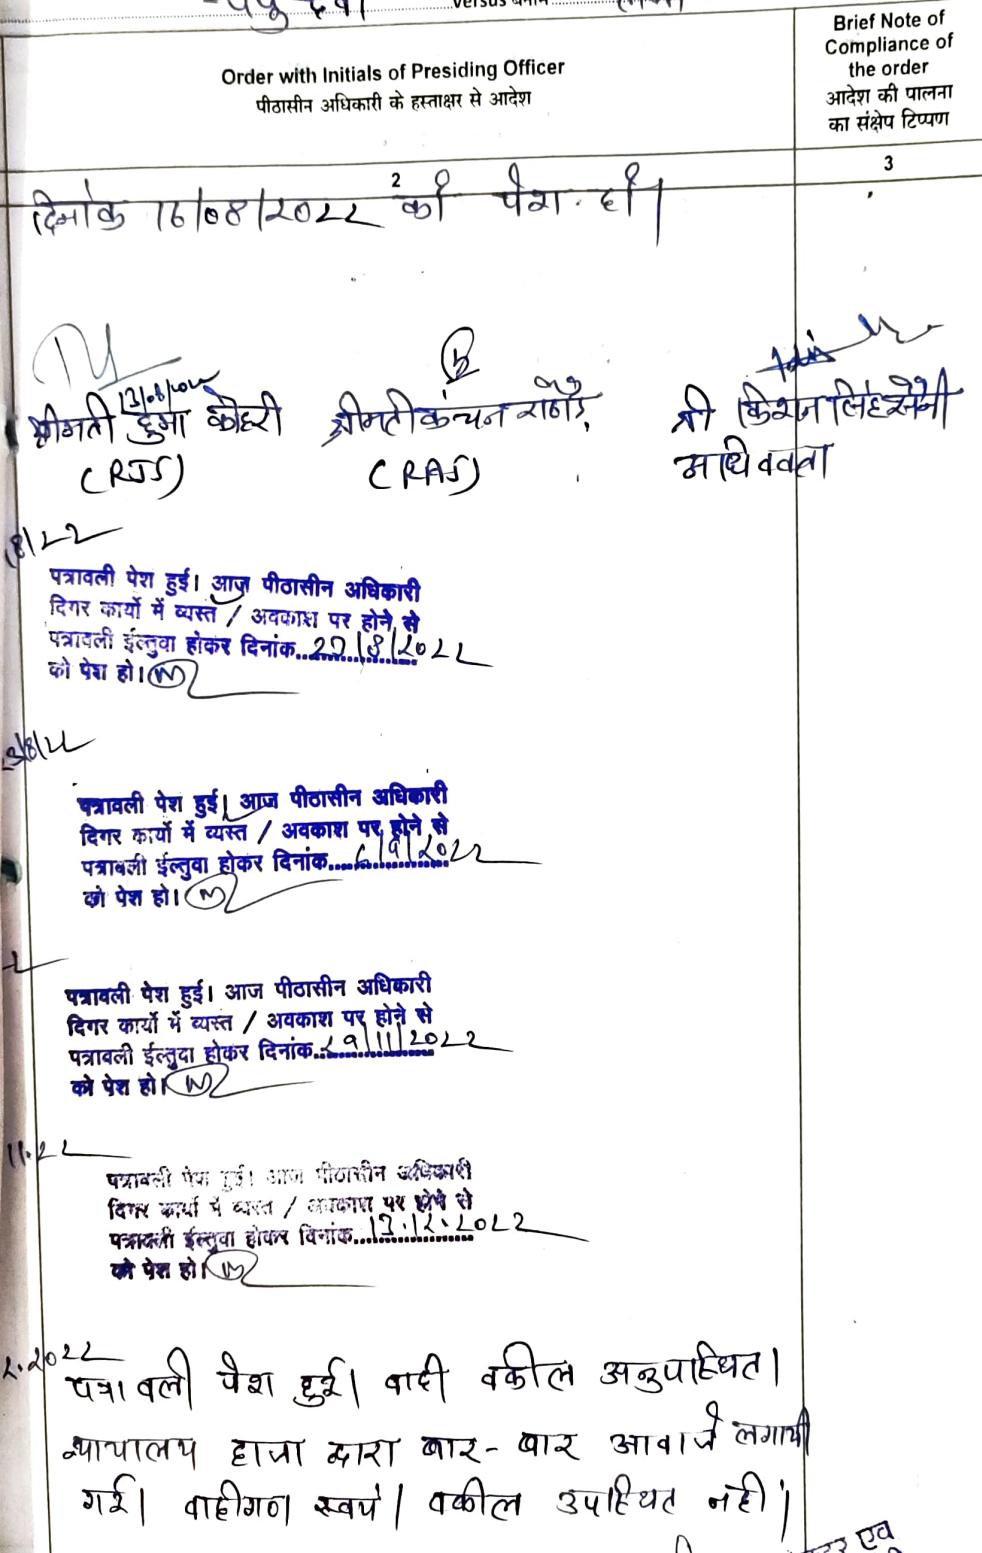 Versus बनाम
Order with Initials of Presiding Officer
पीठासीन अधिकारी के हस्ताक्षर से आदेश
Brief Note of
Compliance of
the order
आदेश की पालना
का संक्षेप टिप्पण
2
3
दिनांक 16/08/2022 को पेश हो।
श्रीमती हुमा कोहरी
(RJS)
श्रीमती कंचन राठौड़
(RAS)
श्री किशन सिंह सैनी
अधिवक्ता
8/22
पत्रावली पेश हुई। आज पीठासीन अधिकारी
दिगर कार्यो में व्यस्त / अवकाश पर होने से
पत्रावली ईल्तुवा होकर दिनांक /8/2022
को पेश हो।
/8/22
पत्रावली पेश हुई। आज पीठासीन अधिकारी
दिगर कार्यो में व्यस्त / अवकाश पर होने से
पत्रावली ईल्तुवा होकर दिनांक 6/9/2022
को पेश हो।
पत्रावली पेश हुई। आज पीठासीन अधिकारी
दिगर कार्यो में व्यस्त / अवकाश पर होने से
पत्रावली ईल्तुवा होकर दिनांक 29/11/2022
को पेश हो।
11.22
पत्रावली पेश हुई। आज पीठासीन अधिकारी
दिगर कार्यो में व्यस्त / अवकाश पर होने से
पत्रावली ईल्तुवा होकर दिनांक 13.12.2022
को पेश हो।
2.2022
पत्रावली पेश हुई। वादी वकील अनुपस्थित।
न्यायालय हाजा द्वारा बार-बार आवाजे लगायी
गई। वादीगण स्वयं / वकील उपस्थित नही।
एवं